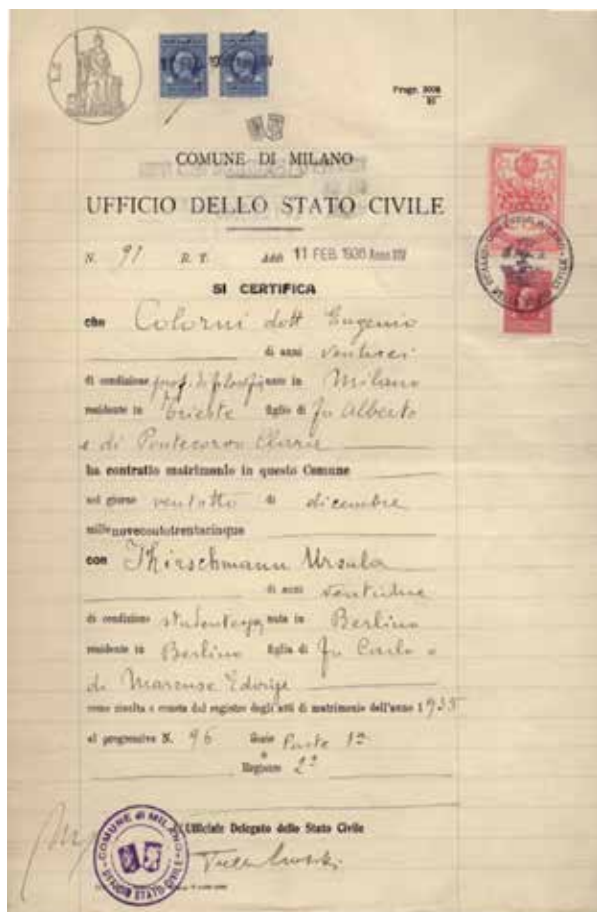 Progr. 3008
COMUNE DI MILANO
UFFICIO DELLO STATO CIVILE
N. 91 R. T. Addì 11 FEB. 1936 Anno XIV
SI CERTIFICA
che Colorni dott Eugenio
di anni ventisei
di condizione prof. di filosofia nato in Milano
residente in Trieste figlio di fu Alberto
e di Pontecorvo Clara
ha contratto matrimonio in questo Comune
nel giorno ventotto di dicembre
millenovecentotrentacinque
con Hirschmann Ursula
di anni ventidue
di condizione studentessa nata in Berlino
residente in Berlino figlia di fu Carlo e
di Marcuse Edvige
come risulta e consta dal registro degli atti di matrimonio dell'anno 1935
al progressivo N. 96 Serie Parte 1ª
e
Registro 2º
L'Ufficiale Delegato dello Stato Civile
COMUNE di MILANO
UFFICIO STATO CIVILE